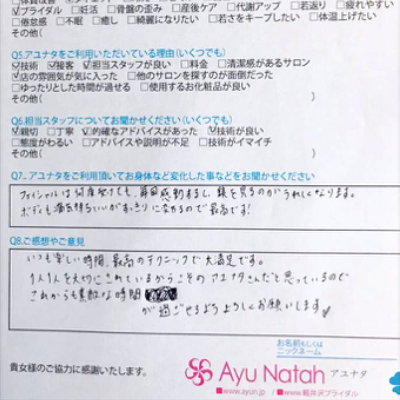 ☑ブライダル □妊活 □骨盤の歪み □産後ケア □代謝アップ □若返り □疲れやすい
□倦怠感 □不眠 □癒し □綺麗になりたい □若さをキープしたい □体温上げたい
その他( )
Q5.アユナタをご利用いただいている理由(いくつでも)
☑技術 ☑接客 ☑担当スタッフが良い □料金 □清潔感があるサロン
☑店の雰囲気が気に入った □他のサロンを探すのが面倒だった
□ゆったりとした時間が過せる □使用するお化粧品が良い
その他( )
Q6.担当スタッフについてお聞かせください(いくつでも)
☑親切 □丁寧 ☑的確なアドバイスがあった ☑技術が良い
□態度がわるい □アドバイスや説明が不足 □技術がイマイチ
その他( )
Q7.アユナタをご利用頂いてお身体など変化した事などをお聞かせください
フェイシャルは何度受けても、毎回感動するし、鏡を見るのがうれしくなります。
ボディも痛気持ちいいがすっきりに変わるので最高です!
Q8.ご感想やご意見
いつも楽しい時間、最高のテクニックで大満足です。
1人1人を大切にされているからこそのアユナタさんだと思っているので
これからも素敵な時間
が過ごせるようよろしくお願いします
お名前もしくは
ニックネーム
貴女様のご協力に感謝いたします。
Ayu Natah アユナタ
■www.ayun.jp/ ■www.軽井沢ブライダル